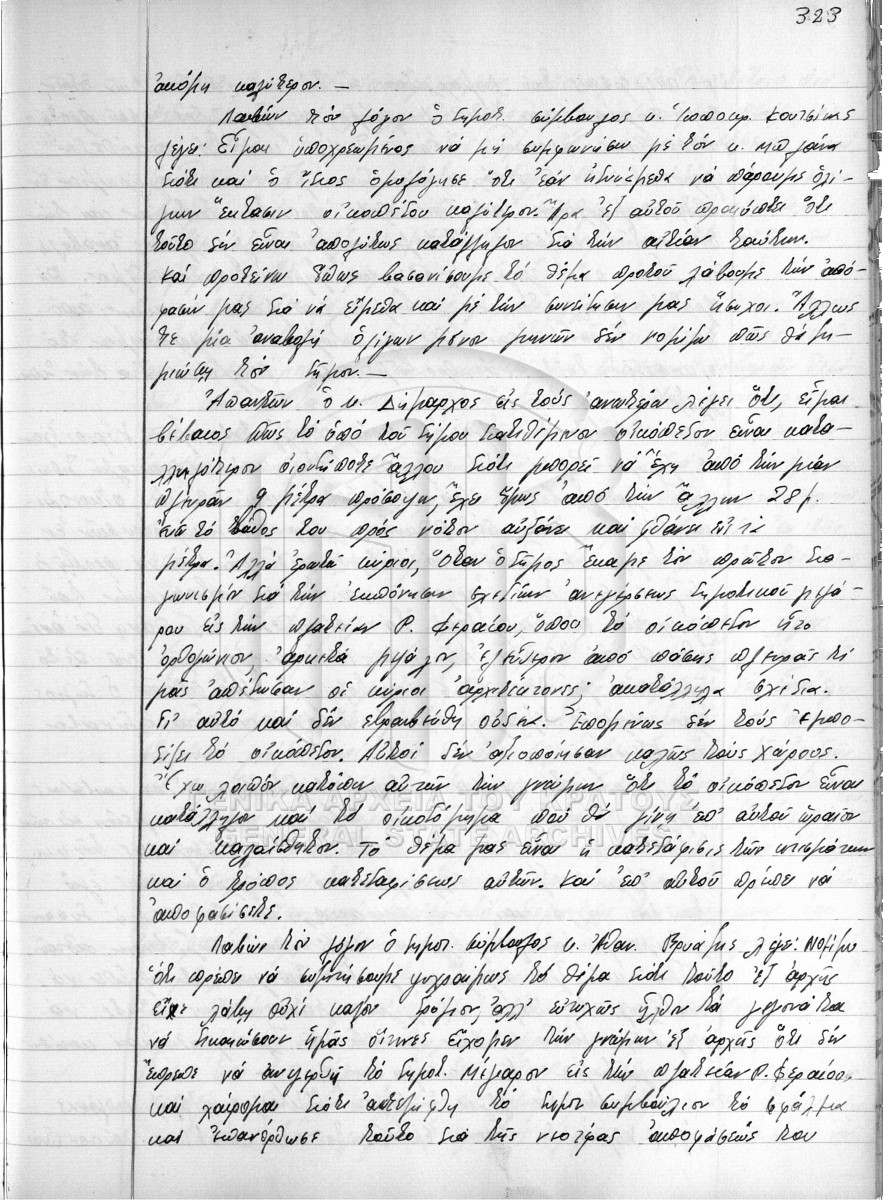 323
ἀκόμη καλύτερον. —
Λαβών τόν λόγον ὁ δημοτ. σύμβουλος κ. Ἱπποκρ. Κουτσίκος
λέγει: Εἶμαι ὑποχρεωμένος νά μή συμφωνήσω μέ τόν κ. Μπλάνα
διότι καί ὁ ἴδιος ὁμολόγησε ὅτι ἐάν ἠδυνάμεθα νά πάρουμε ὀλί-
γην ἔκτασιν οἰκοπέδου καλύτερον. Ἄρα ἐξ αὐτοῦ προκύπτει ὅτι
τοῦτο δέν εἶναι ἀπολύτως κατάλληλον διά τήν αἰτίαν ταύτην.
Καί προτείνω ὅπως βασανίσουμε τό θέμα προτοῦ λάβουμε τήν ἀπό-
φασίν μας διά νά εἴμεθα καί μέ τήν συνείδησιν μας ἥσυχοι. Ἄλλως
τε μία ἀναβολή ὀλίγων μόνον μηνῶν δέν νομίζω πῶς θά ζη-
μιώσῃ τόν δῆμον. —
Ἀπαντῶν ὁ κ. Δήμαρχος εἰς τούς ἀνωτέρω λέγει ὅτι, εἶμαι
βέβαιος πῶς τό ὑπό τοῦ δήμου διατιθέμενον οἰκόπεδον εἶναι κατα-
λληλότερον οἱουδήποτε ἄλλου διότι μπορεῖ νά ἔχῃ ἀπό τήν μίαν
πλευράν 9 μέτρα πρόσοψιν, ἔχει ὅμως ἀπό τήν ἄλλην 28 μ.
ἐνῶ τό βάθος του πρός νότον αὐξάνει καί φθάνει εἰς 12
μέτρα. Ἀλλά ἐρωτῶ κύριοι, Ὅταν ὁ δῆμος ἔκαμε τόν πρῶτον δια-
γωνισμόν διά τήν ἐκπόνησιν σχεδίων ἀνεγέρσεως δημοτικοῦ μεγά-
ρου εἰς τήν πλατεῖαν Ρ. Φεραίου, ὅπου τό οἰκόπεδον ἦτο
ὀρθογώνιον, ἀρκετά μεγάλον, ἐλεύθερον ἀπό πάσης πλευρᾶς τί
μας ἀπέδωσαν οἱ κύριοι ἀρχιτέκτονες; ἀκατάλληλα σχέδια.
Γι' αὐτό καί δέν ἐβραβεύθη οὐδείς. Ἑπομένως δέν τούς ἐμπο-
δίζει τό οἰκόπεδον. Αὐτοί δέν ἀξιοποίησαν καλῶς τούς χώρους.
Ἔχω λοιπόν κατόπιν αὐτῶν τήν γνώμην ὅτι τό οἰκόπεδον εἶναι
κατάλληλον καί τό οἰκοδόμημα πού θά γίνῃ ἐπ' αὐτοῦ ὡραῖον
καί καλαίσθητον. Τό θέμα μας εἶναι ἡ κατεδάφισις τῶν κτισμάτων
καί ὁ τρόπος κατεδαφίσεως αὐτῶν. Καί ἐπ' αὐτοῦ πρέπει νά
ἀποφασίσετε.
Λαβών τόν λόγον ὁ δημοτ. σύμβουλος κ. Ἀθαν. λέγει: Νομίζω
ὅτι πρέπει νά συζητήσουμε ψυχραίμως τό θέμα διότι τοῦτο ἐξ ἀρχῆς
εἶχε λάβει οὐχί καλόν δρόμον, ἀλλ' εὐτυχῶς ἦλθον τά γεγονότα
νά δικαιώσουν ἡμᾶς οἵτινες εἴχομεν τήν γνώμην ἐξ ἀρχῆς ὅτι δέν
ἔπρεπε νά ἀνεγερθῇ τό δημοτ. Μέγαρον εἰς τήν πλατεῖαν Ρ. Φεραίου
καί χαίρομαι διότι ἀντελήφθη τό δημοτ. συμβούλιον τό σφάλμα
καί ἐπανόρθωσε τοῦτο διά τῆς νεωτέρας ἀποφάσεώς του
ΓΕΝΙΚΑ ΑΡΧΕΙΑ ΤΟΥ ΚΡΑΤΟΥΣ
GENERAL STATE ARCHIVES